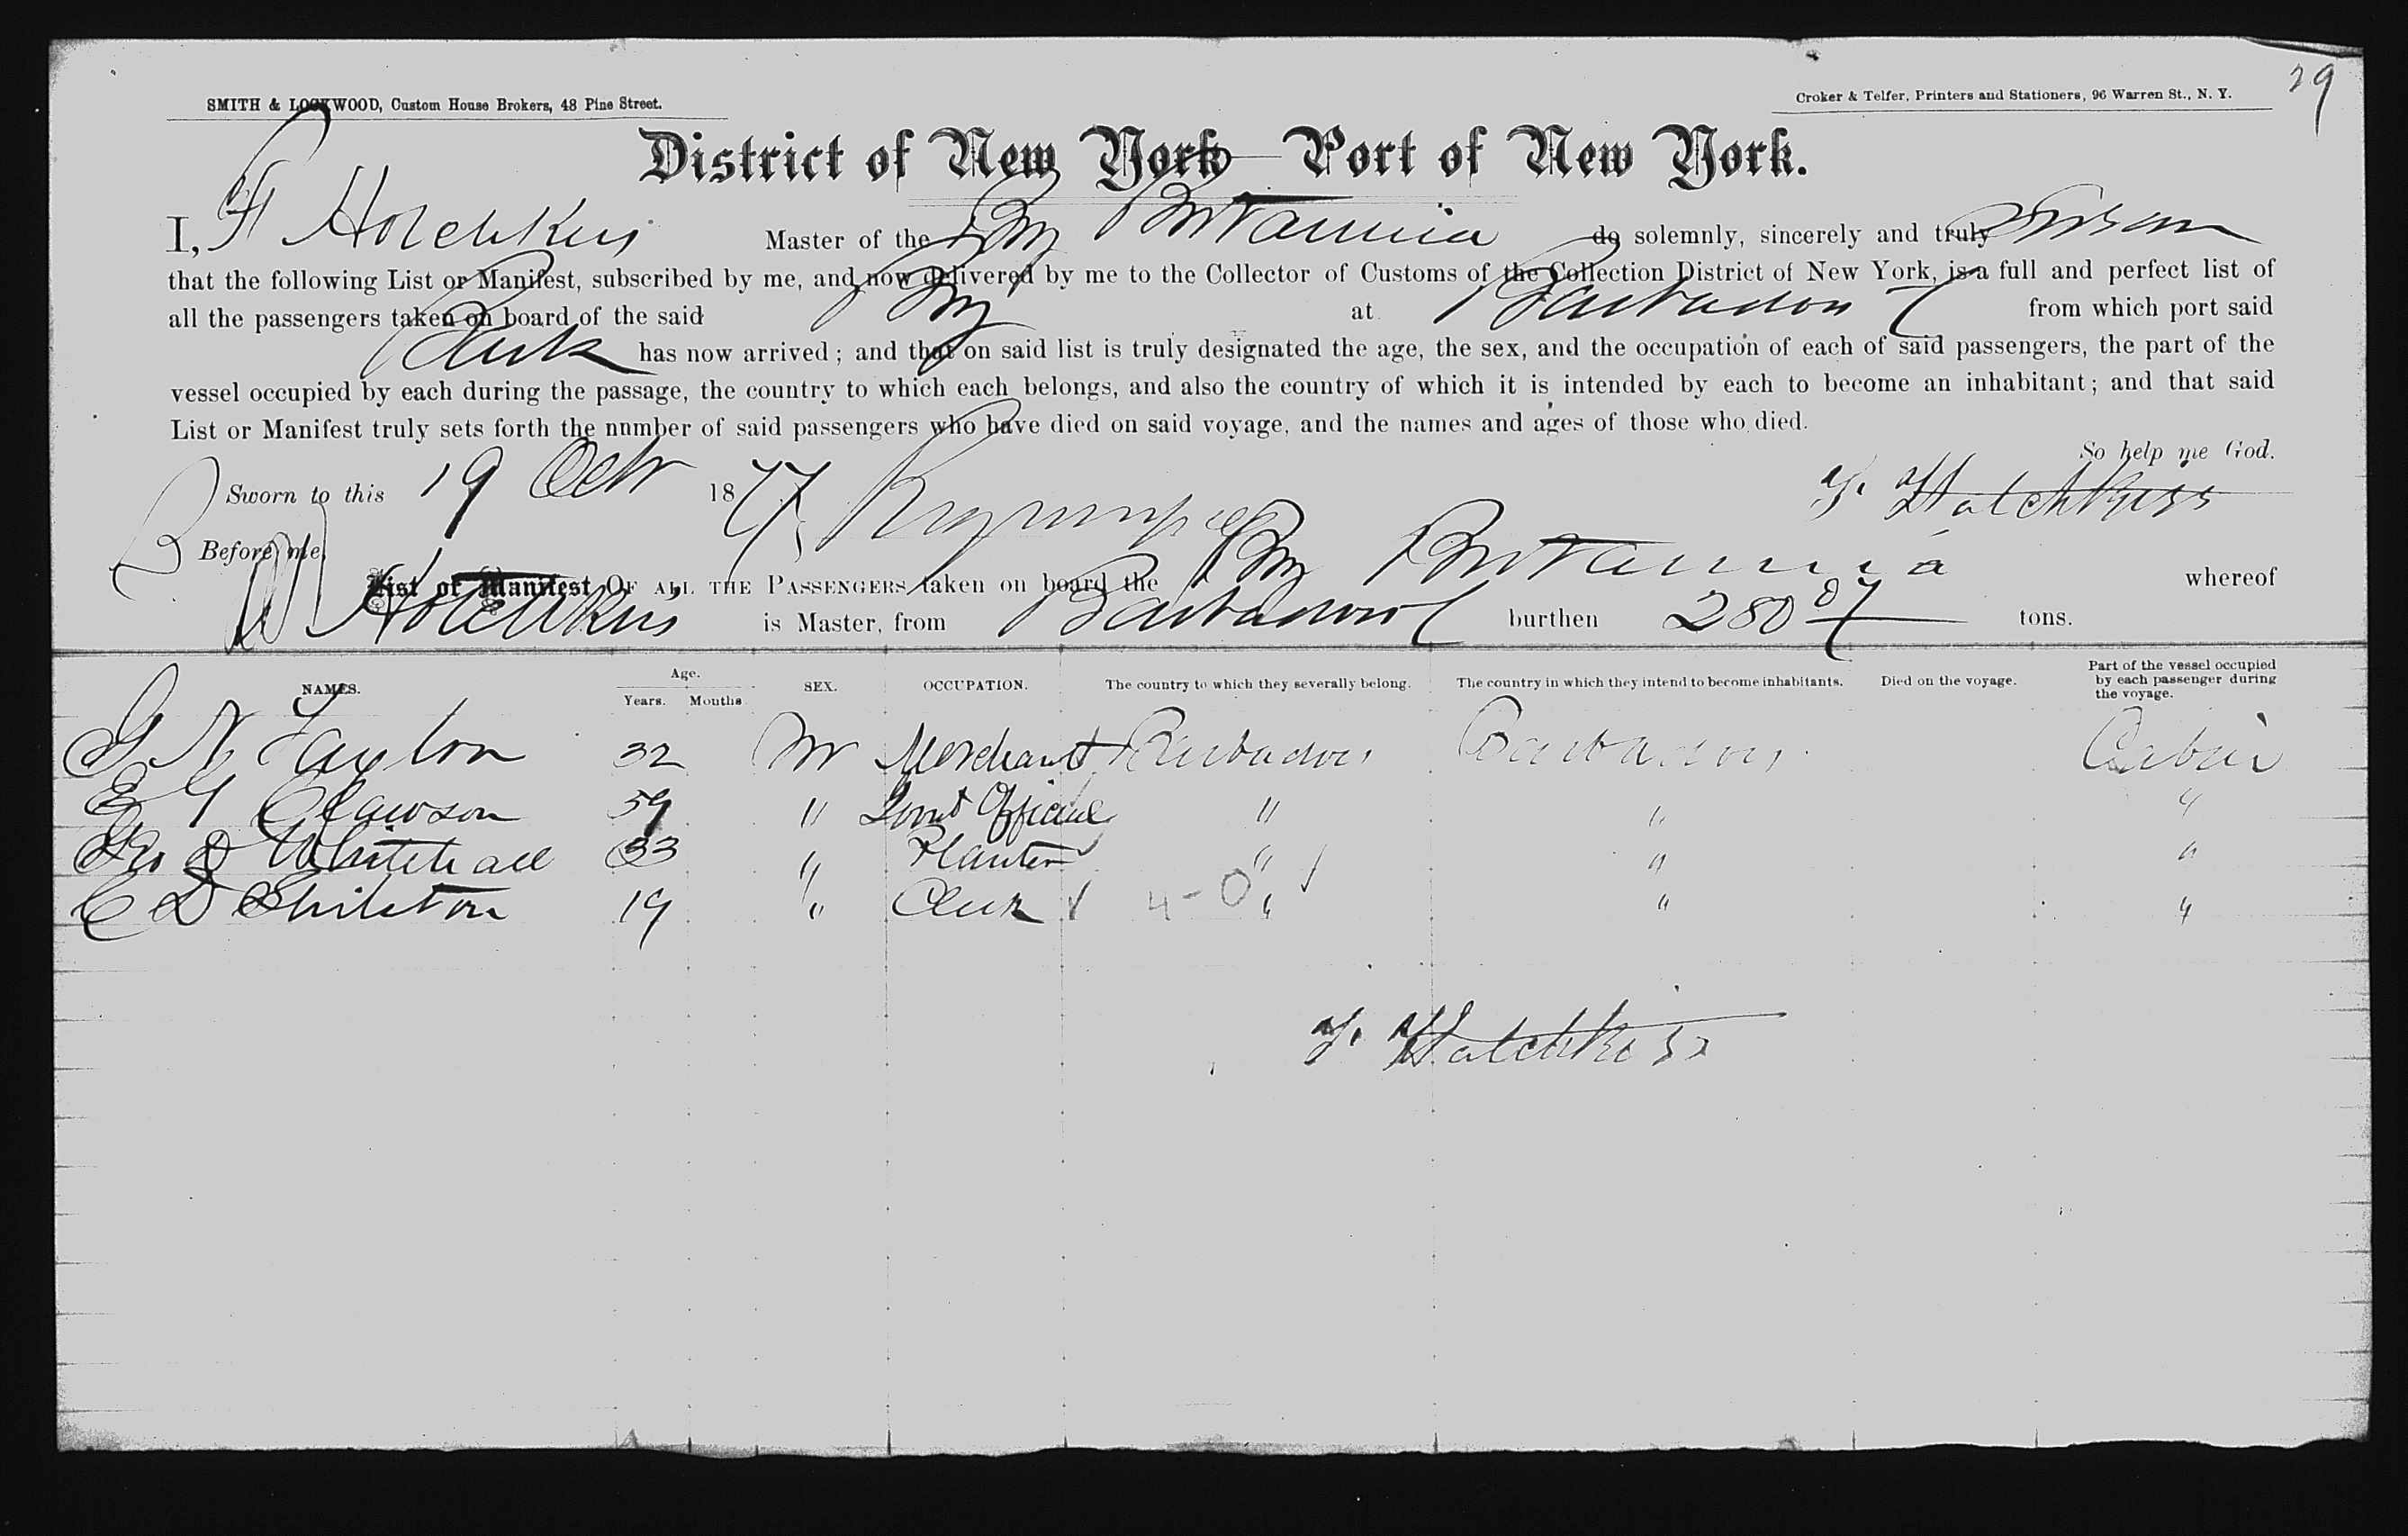 29
SMITH & LOCKWOOD, Custom House Brokers, 48 Pine Street.
Croker & Telfer, Printers and Stationers, 96 Warren St., N. Y.
District of New York—Port of New York.
I, F Hotchkiss Master of the Brig Britannia do solemnly, sincerely and truly swear
that the following List or Manifest, subscribed by me, and now delivered by me to the Collector of Customs of the Collection District of New York, is a full and perfect list of
all the passengers taken on board of the said Brig at Barbados from which port said
has now arrived; and that on said list is truly designated the age, the sex, and the occupation of each of said passengers, the part of the
vessel occupied by each during the passage, the country to which each belongs, and also the country of which it is intended by each to become an inhabitant; and that said
List or Manifest truly sets forth the number of said passengers who have died on said voyage, and the names and ages of those who died.
So help me God.
Sworn to this 19 Octr 1877 F. Hotchkiss
Before me
List or Manifest OF ALL THE PASSENGERS taken on board the Brig Britannia whereof
Hotchkiss is Master, from Barbados burthen 280 07 tons.
NAMES. Age. Years. Months SEX. OCCUPATION. The country to which they severally belong. The country in which they intend to become inhabitants. Died on the voyage. Part of the vessel occupied by each passenger during the voyage.
G N Taylor 32 M Merchant Barbados Barbados Cabin
E G Clawson 59 " Govmt Official " " "
Geo D Whitehall 33 " Planter " " "
C D Shilston 19 " Clerk 4-0 " " "
F. Hotchkiss